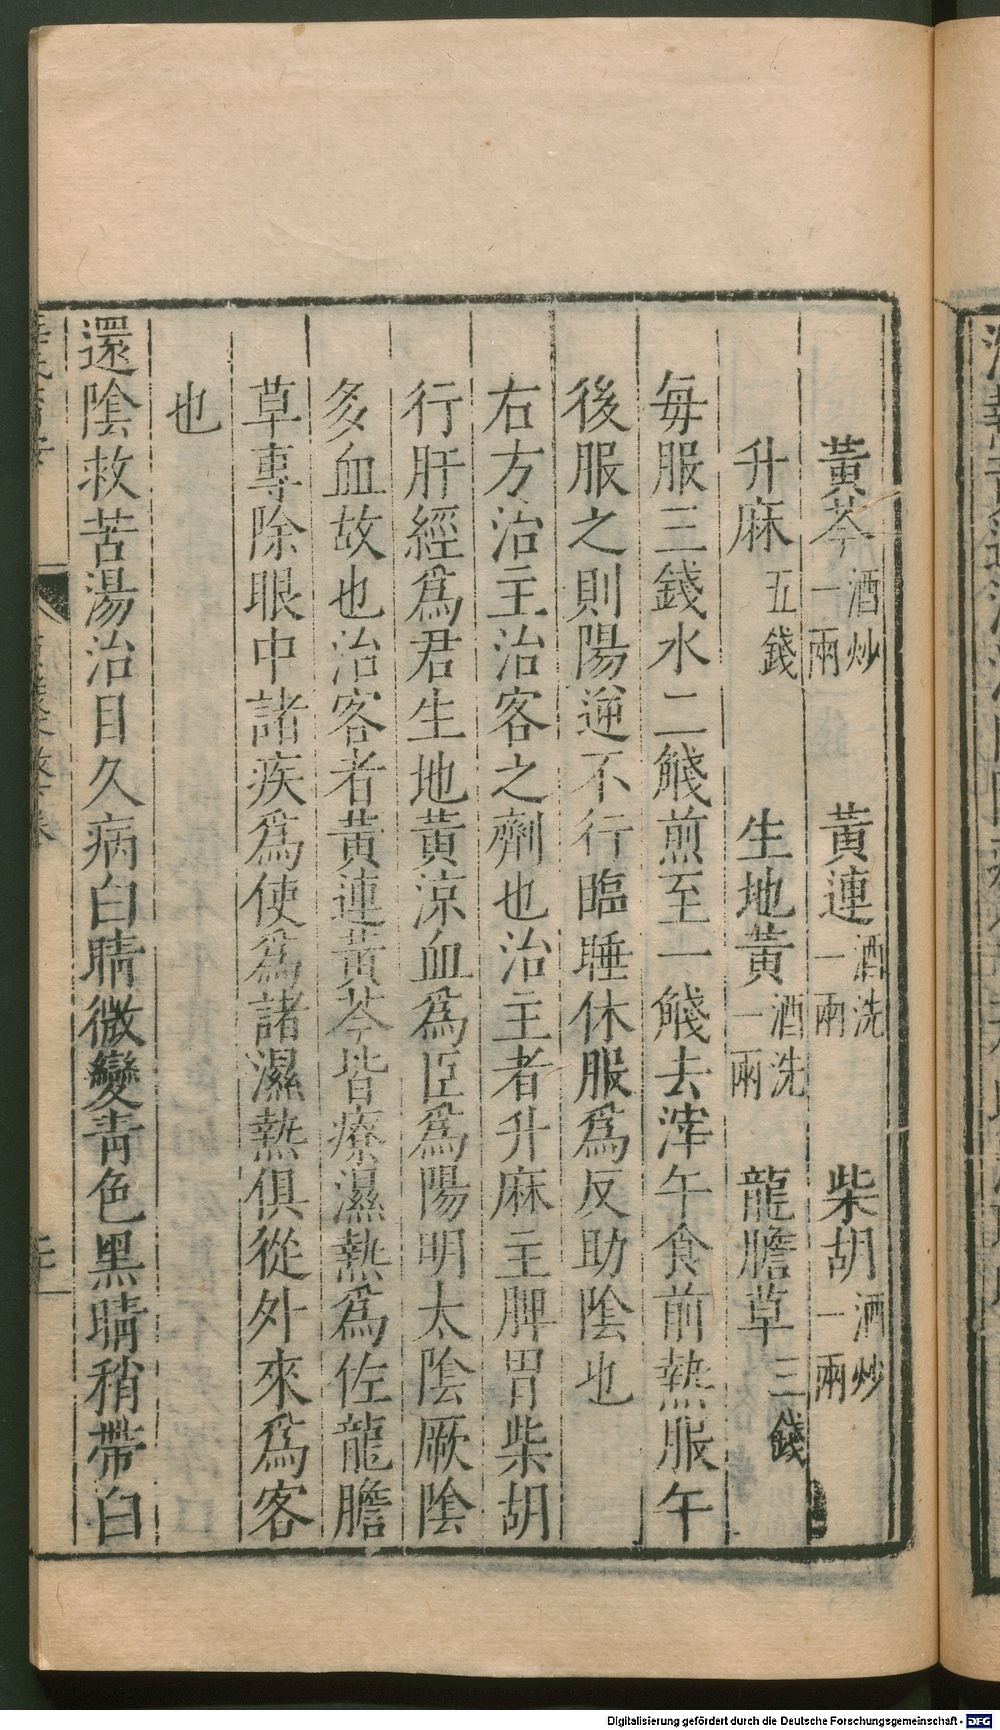 黃芩酒炒一兩 黃連酒洗一兩 柴胡酒炒一兩
升麻五錢 生地黃酒洗一兩 龍膽草三錢
毎服三錢水二盞煎至一盞去滓午食前熱服午
後服之則陽逆不行臨睡休服爲反助陰也
右方治主治客之劑也治主者升麻主脾胃柴胡
行肝經爲君生地黃涼血爲臣爲陽明太陰厥陰
多血故也治客者黃連黃芩皆療濕熱爲佐龍膽
草專除眼中諸疾爲使爲諸濕熱俱從外來爲客
也
還陰救苦湯治目久病白睛微變靑色黑睛稍帶白
Digitalisierung gefördert durch die Deutsche Forschungsgemeinschaft - DFG